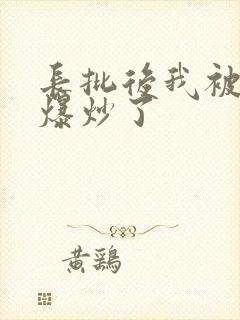 長批後我被
爆炒了
黃鷄